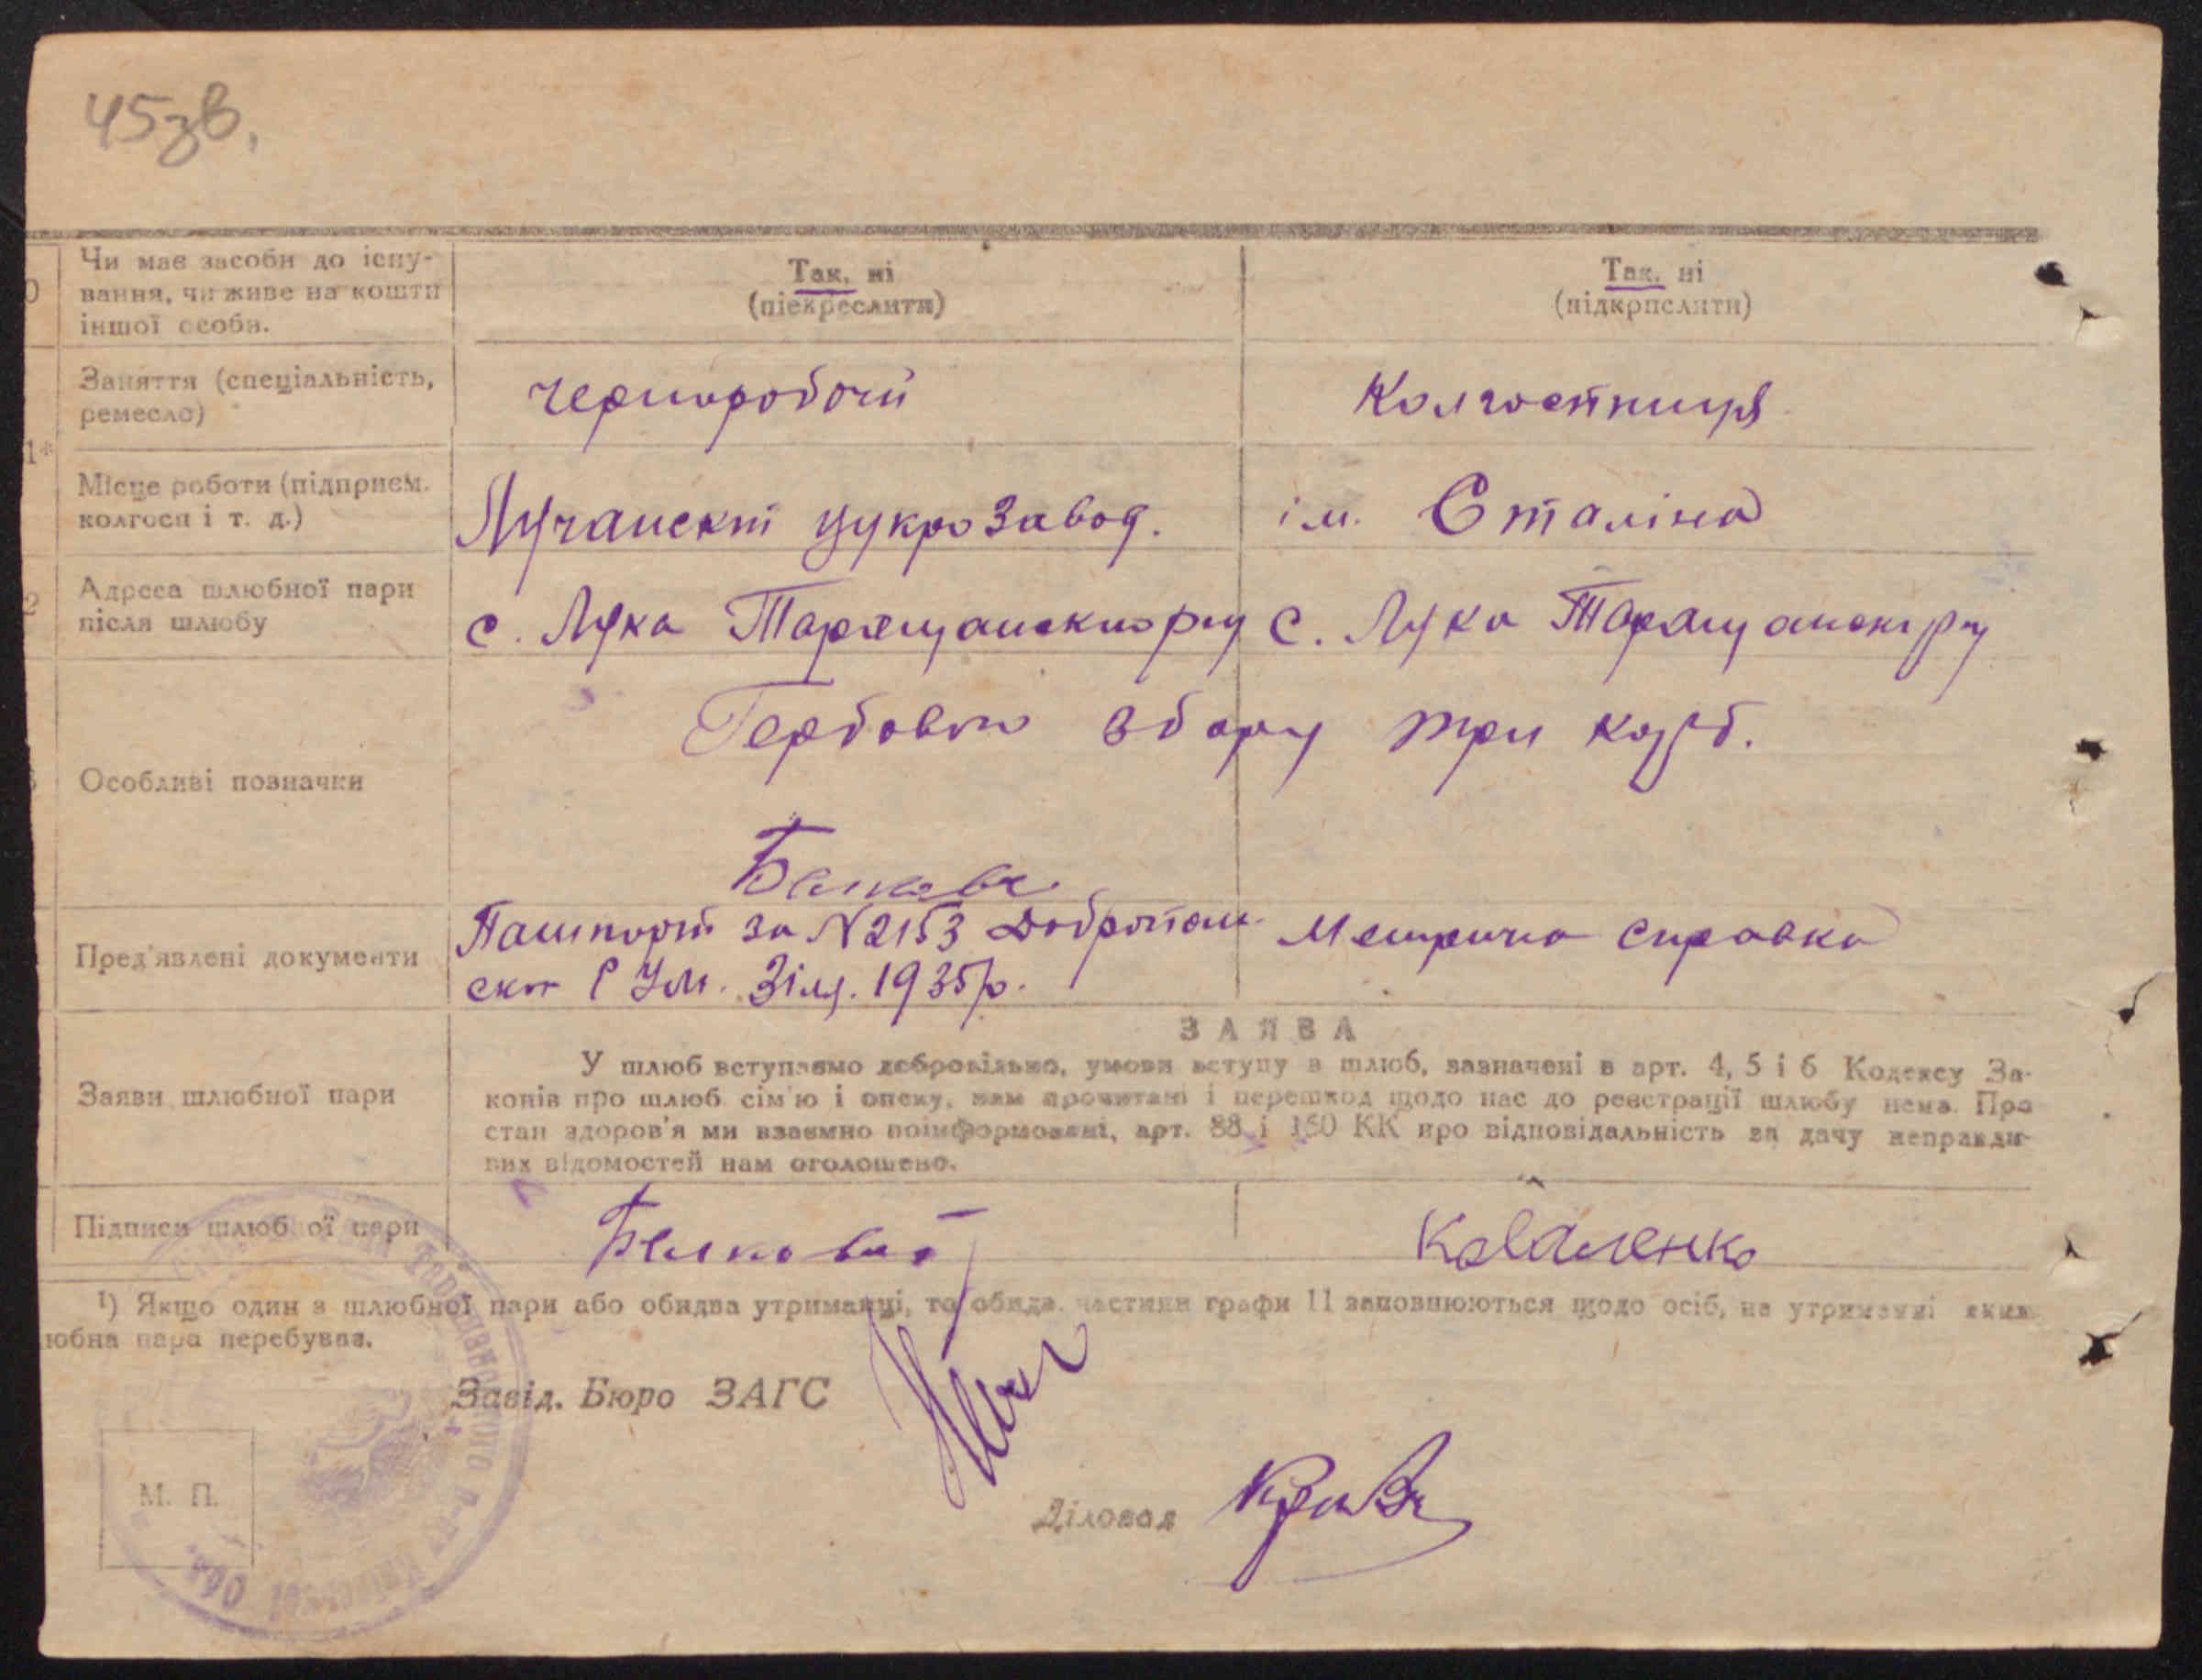 45зв.
Чи має засоби до існу-
вання, чи живе на кошти
іншої особи.
Так, ні
(піекреслити)
Так, ні
(підкрпсляти)
Заняття (спеціальність,
ремесло)
черноробочий
Колгоспниця
1*
Місце роботи (підприєм.
колгосп і т. д.)
Лучанский цукрозавод.
ім. Сталіна
2
Адреса шлюбної пари
після шлюбу
с. Лука Таращанского р-ну
с. Лука Таращанск р-ну
Особливі позначки
Гербового збору три карб.
Пред'явлені документи
Пашпорт за N 2153
1935р.
Метрична справка
Заяви шлюбної пари
ЗАЯВА
У шлюб вступаємо добровільно, умови вступу в шлюб, зазначені в арт. 4, 5 і 6 Кодексу За-
конів про шлюб сім'ю і опеку, нам прочитані і перешкод щодо нас до реєстрації шлюбу нема. Про
стан здоров'я ми взаємно поінформовані, арт. 88 і 160 КК про відповідальність за дачу неправди-
вих відомостей нам оголошено.
Підписи шлюб ої пари
Коваленко
¹) Якщо один з шлюбної пари або обидва утриманці, то обидв. частини графи 11 заповнюються щодо осіб, на утриманні яких
юбна пара перебуває.
Завід. Бюро ЗАГС
М. П.
Діловод